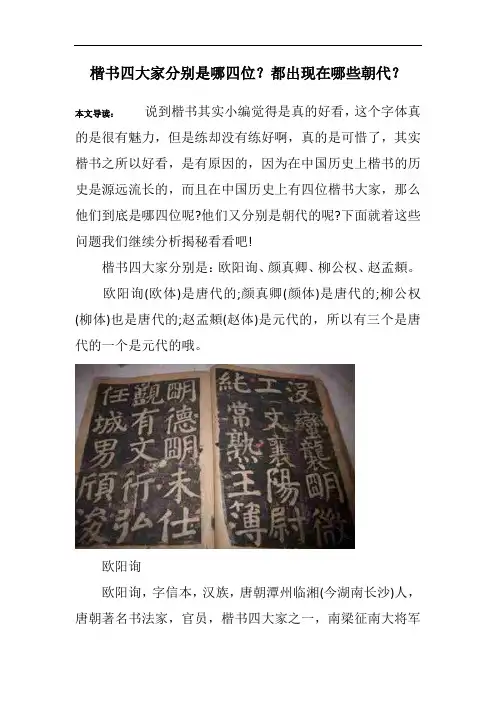 楷书四大家分别是哪四位？都出现在哪些朝代？
本文导读： 说到楷书其实小编觉得是真的好看，这个字体真
的是很有魅力，但是练却没有练好啊，真的是可惜了，其实
楷书之所以好看，是有原因的，因为在中国历史上楷书的历
史是源远流长的，而且在中国历史上有四位楷书大家，那么
他们到底是哪四位呢?他们又分别是朝代的呢?下面就着这些
问题我们继续分析揭秘看看吧!
楷书四大家分别是：欧阳询、颜真卿、柳公权、赵孟頫。
欧阳询(欧体)是唐代的;颜真卿(颜体)是唐代的;柳公权
(柳体)也是唐代的;赵孟頫(赵体)是元代的，所以有三个是唐
代的一个是元代的哦。
没蠻龔明微
工文襄陽尉
純常熟主簿
明德明未仕
觀有文行弘
任城男頎浚
欧阳询
欧阳询，字信本，汉族，唐朝潭州临湘(今湖南长沙)人，
唐朝著名书法家，官员，楷书四大家之一，南梁征南大将军